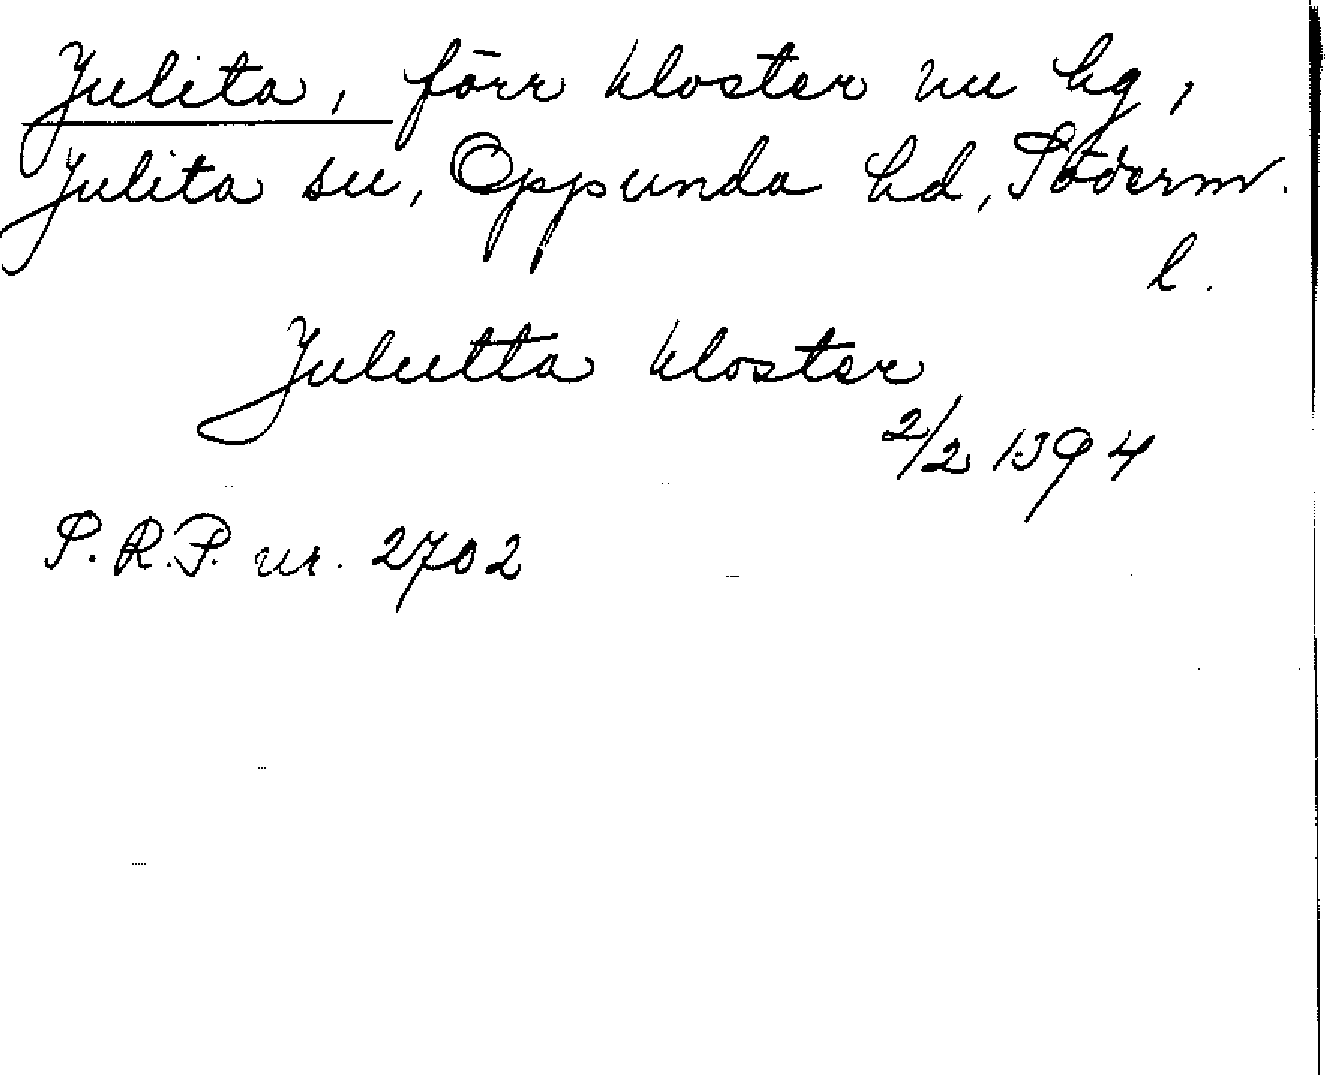 Julita, förr kloster nu hg,
Julita sn, Oppunda hd, Söderm.
l.
Juleetta kloster
2/2 1394
S.R.P. nr. 2702